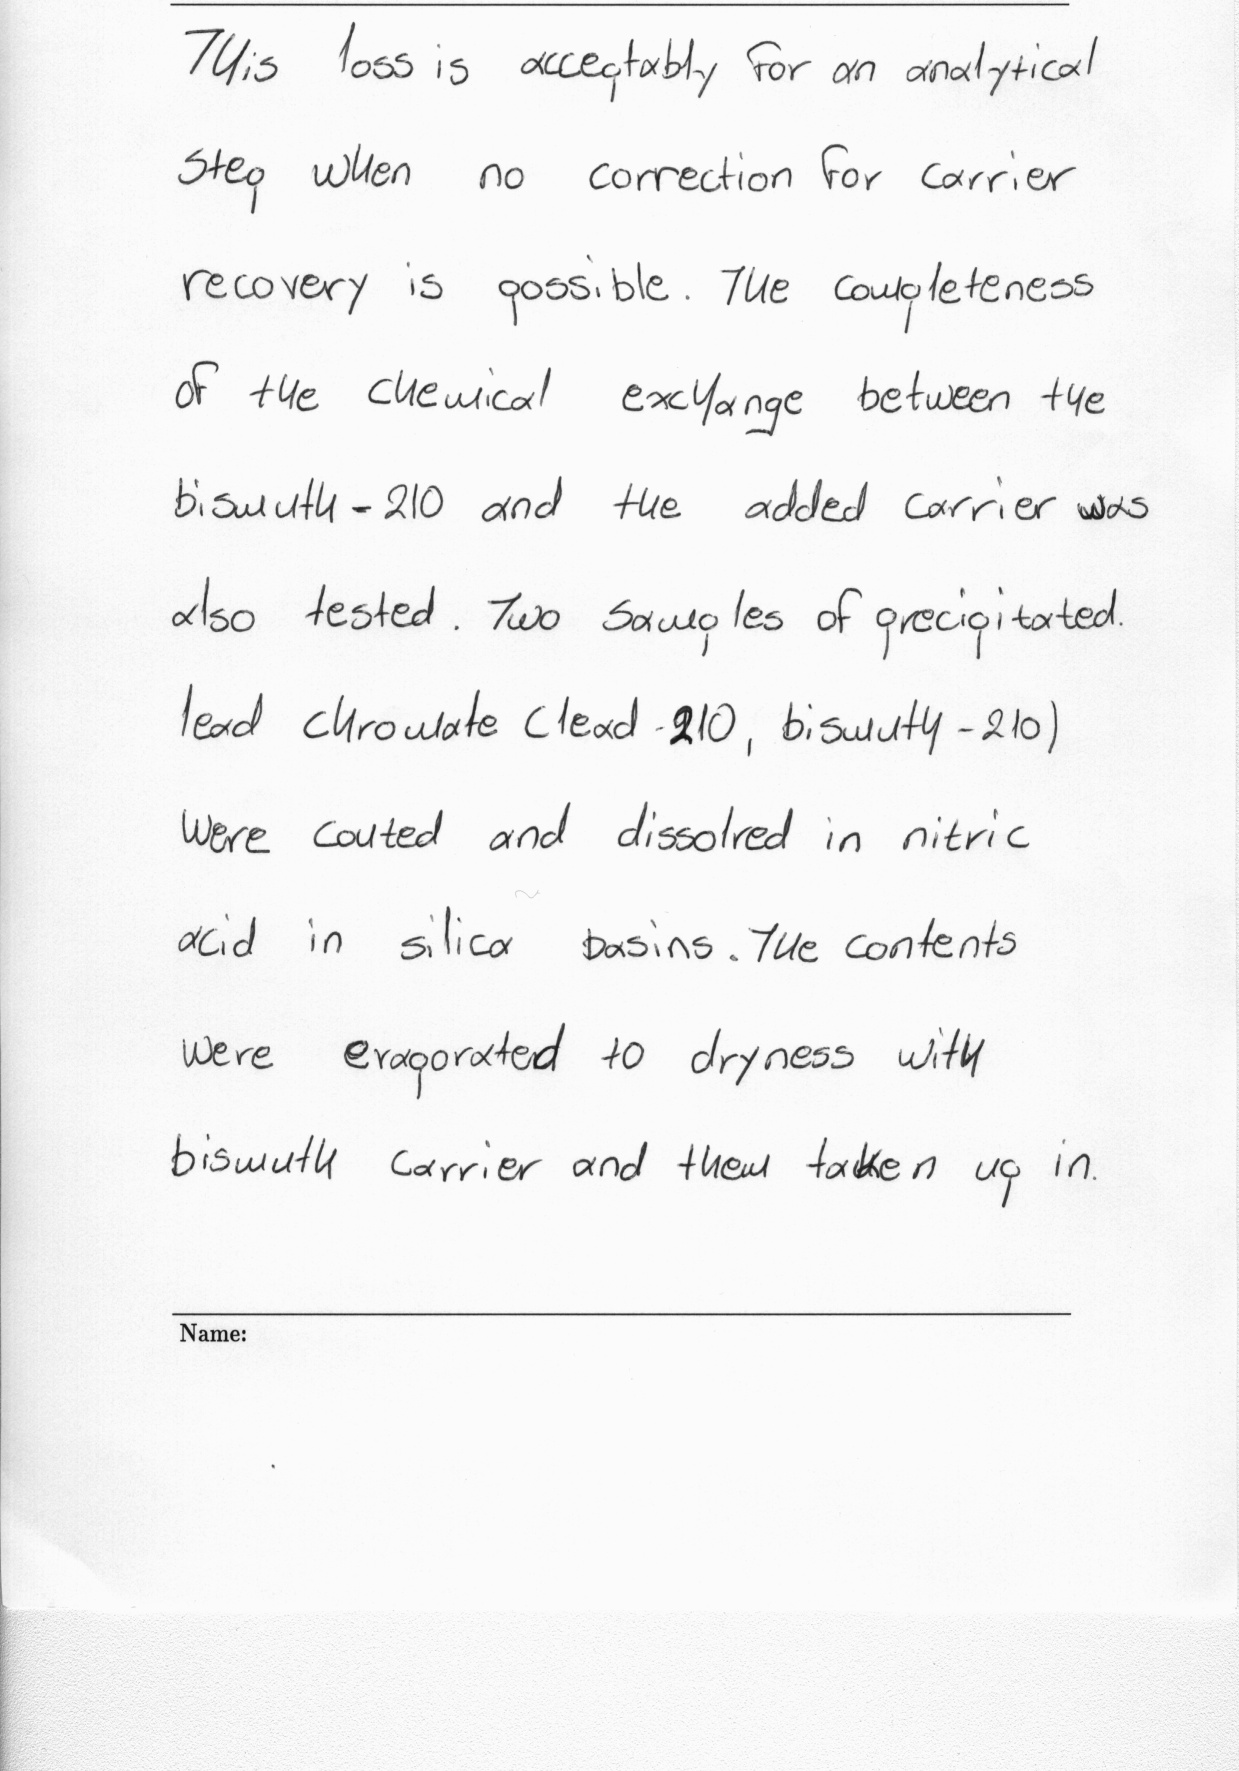 This loss is acceptably for an analytical
step when no correction for carrier
recovery is possible. The completeness
of the chemical exchange between the
bismuth-210 and the added carrier was
also tested. Two samples of precipitated.
lead chromate (lead-210, bismuth-210)
were couted and dissolred in nitric
acid in silica basins. The contents
were eraporated to dryness with
bismuth carrier and them taken up in.
Name: